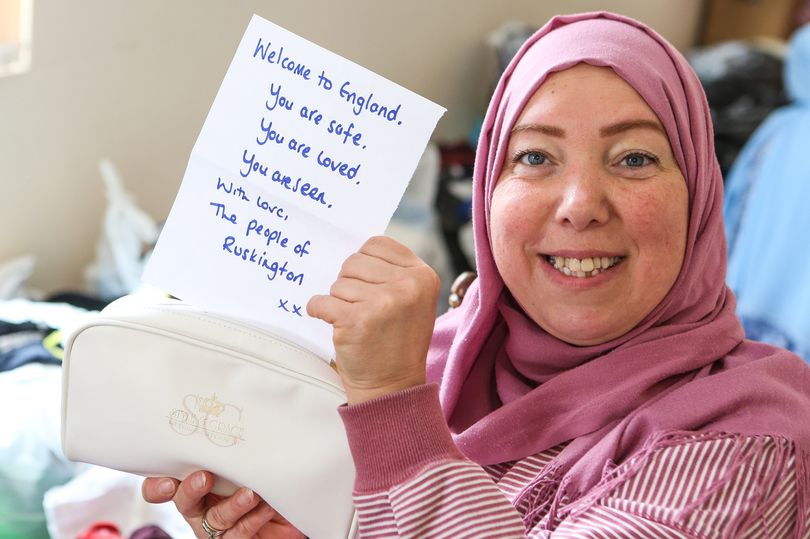 Welcome to England.
You are safe.
You are loved.
You are seen.
With love,
The people of
Ruskington
xx